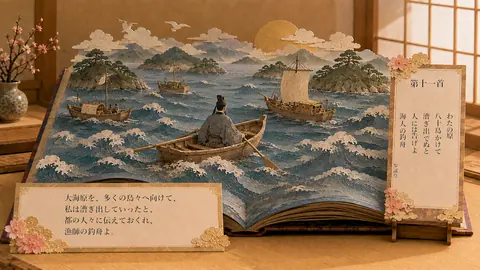 第十一首
わたの原
八十島かけて
漕ぎ出でぬと
人には告げよ
海人の釣舟
大海原を、多くの島々へ向けて、
私は漕ぎ出していったと、
都の人々に伝えておくれ、
漁師の釣舟よ。